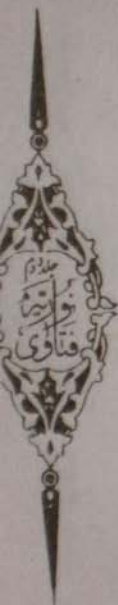 جلد دوم
فتاوی نوریہ